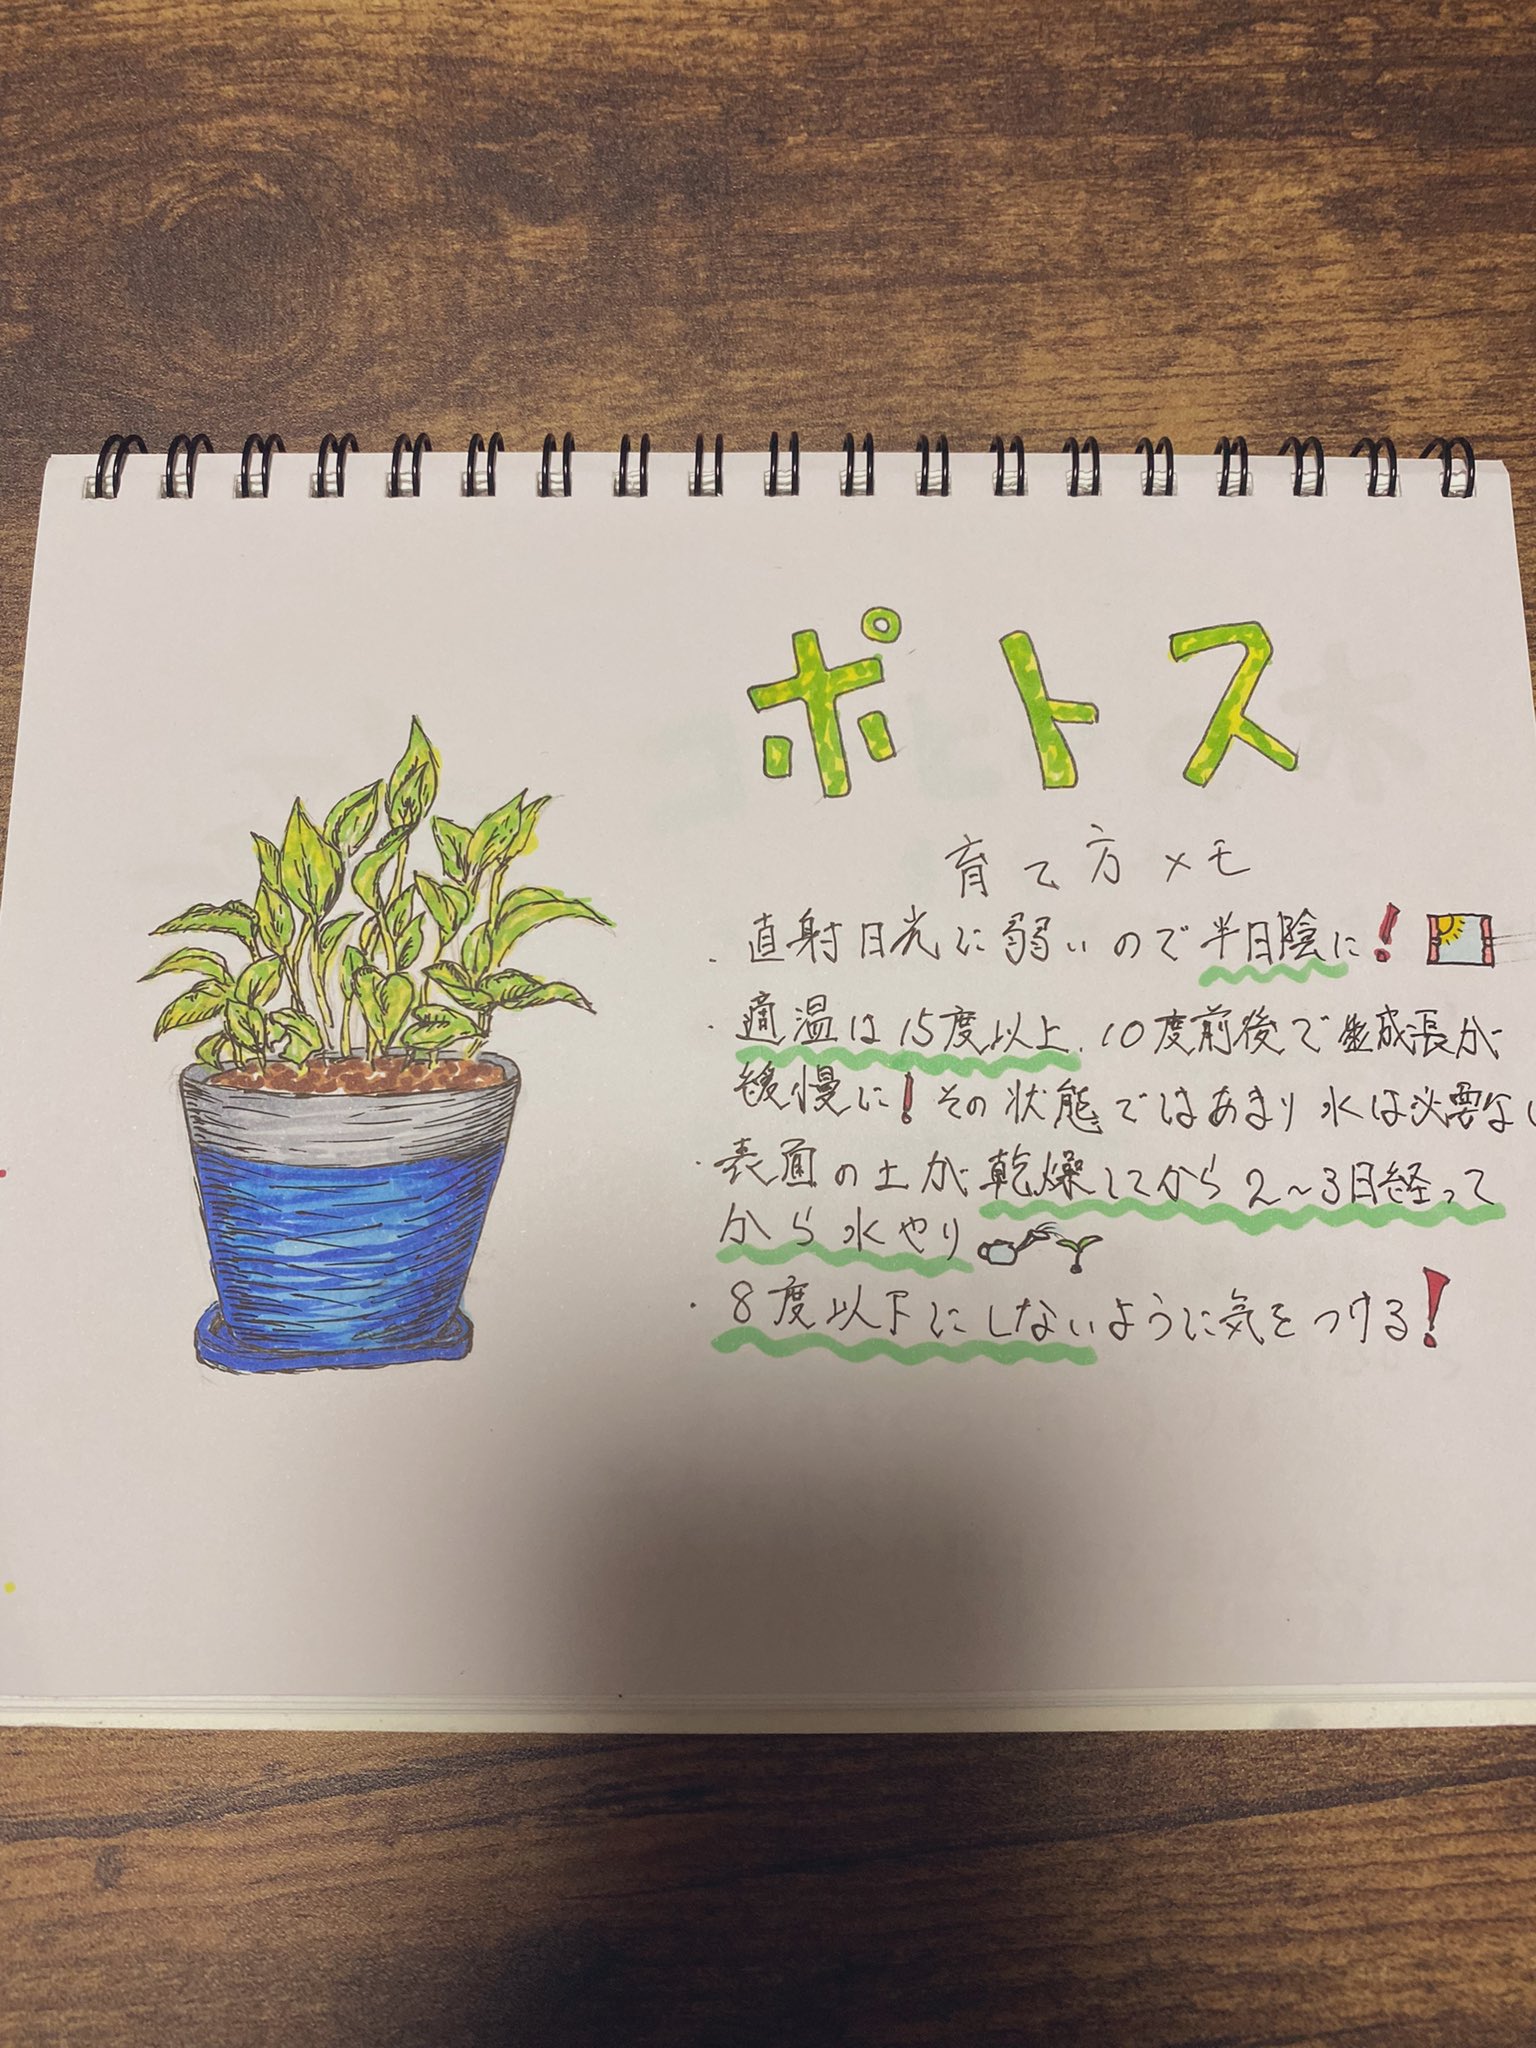 ポトス
育て方メモ
・直射日光に弱いので半日陰に!
・適温は15度以上、10度前後で生成長が
緩慢に!その状態ではあまり水は必要ない
・表面の土が乾燥してから2~3日経って
から水やり
・8度以下にしないように気をつける!